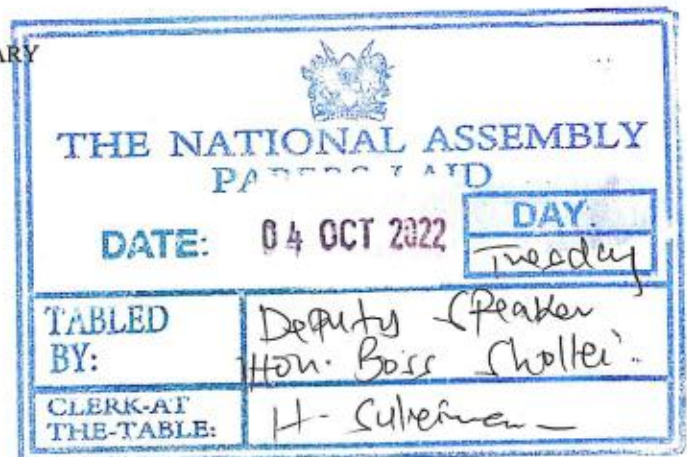 ARY
THE NATIONAL ASSEMBLY
PAPERS LAID
DATE: 04 OCT 2022
DAY:
Tuesday
TABLED BY:
Deputy Speaker
Hon. Boss Shollei.
CLERK-AT THE-TABLE:
H. Suleiman